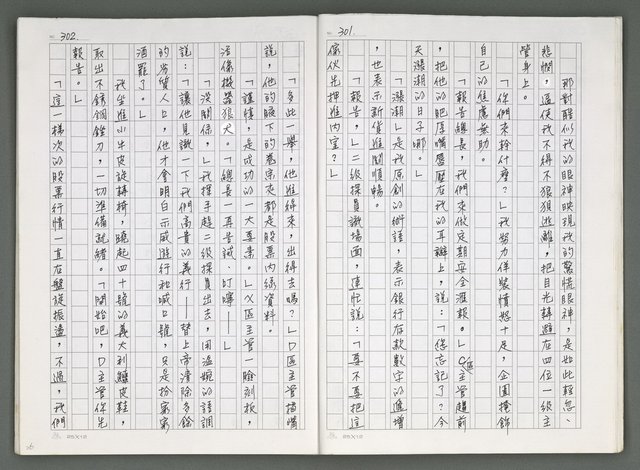 301.
那對酷似我的眼神映現我的驚慌眼神，是如此輕忽、
悲憫，逼使我不得不狼狽逃離，把目光轉避在四位一級主
管身上。
「你們來幹什麼？」我努力佯裝憤怒十足，企圖掩飾
自己的焦慮無助。
「報告總長，我們來做定期安全滙報。」C區主管趨前
，把他的肥厚嘴唇壓在我的耳瓣上，說：「您忘記了？今
天漲潮的日子哪。」
「漲潮」是我原創的術語，表示銀行存款數字的遞增
，也表示新貨進關順暢。
「報告，」二級探員識場面，連忙說：「要不要把這
傢伙先押進內室？」
302.
「多此一舉，他進得來，出得去嗎？」D區主管插嘴
說，他的腋下的卷宗夾都是股票內線資料。
「謹慎，是成功的一大要素。」X區主管一臉刻板，
活像機器狼犬。「總長一再告誡、叮嚀——」
「沒關係，」我揮手趕二級探員出去，用溫婉的語調
說：「讓他見識一下我們高貴的義行——替上帝清除多餘
的劣質人口，他才會明白示威遊行和喊口號，只是扮家家
酒罷了。」
我坐進小牛皮旋轉椅，曉起四十號的義大利鱷皮鞋，
取出不銹鋼銼刀，一切準備就緒。「開始吧，D主管你先
報告。」
「這一梯次的股票行情一直在盤旋振盪，不過，我們
25X12
25X12